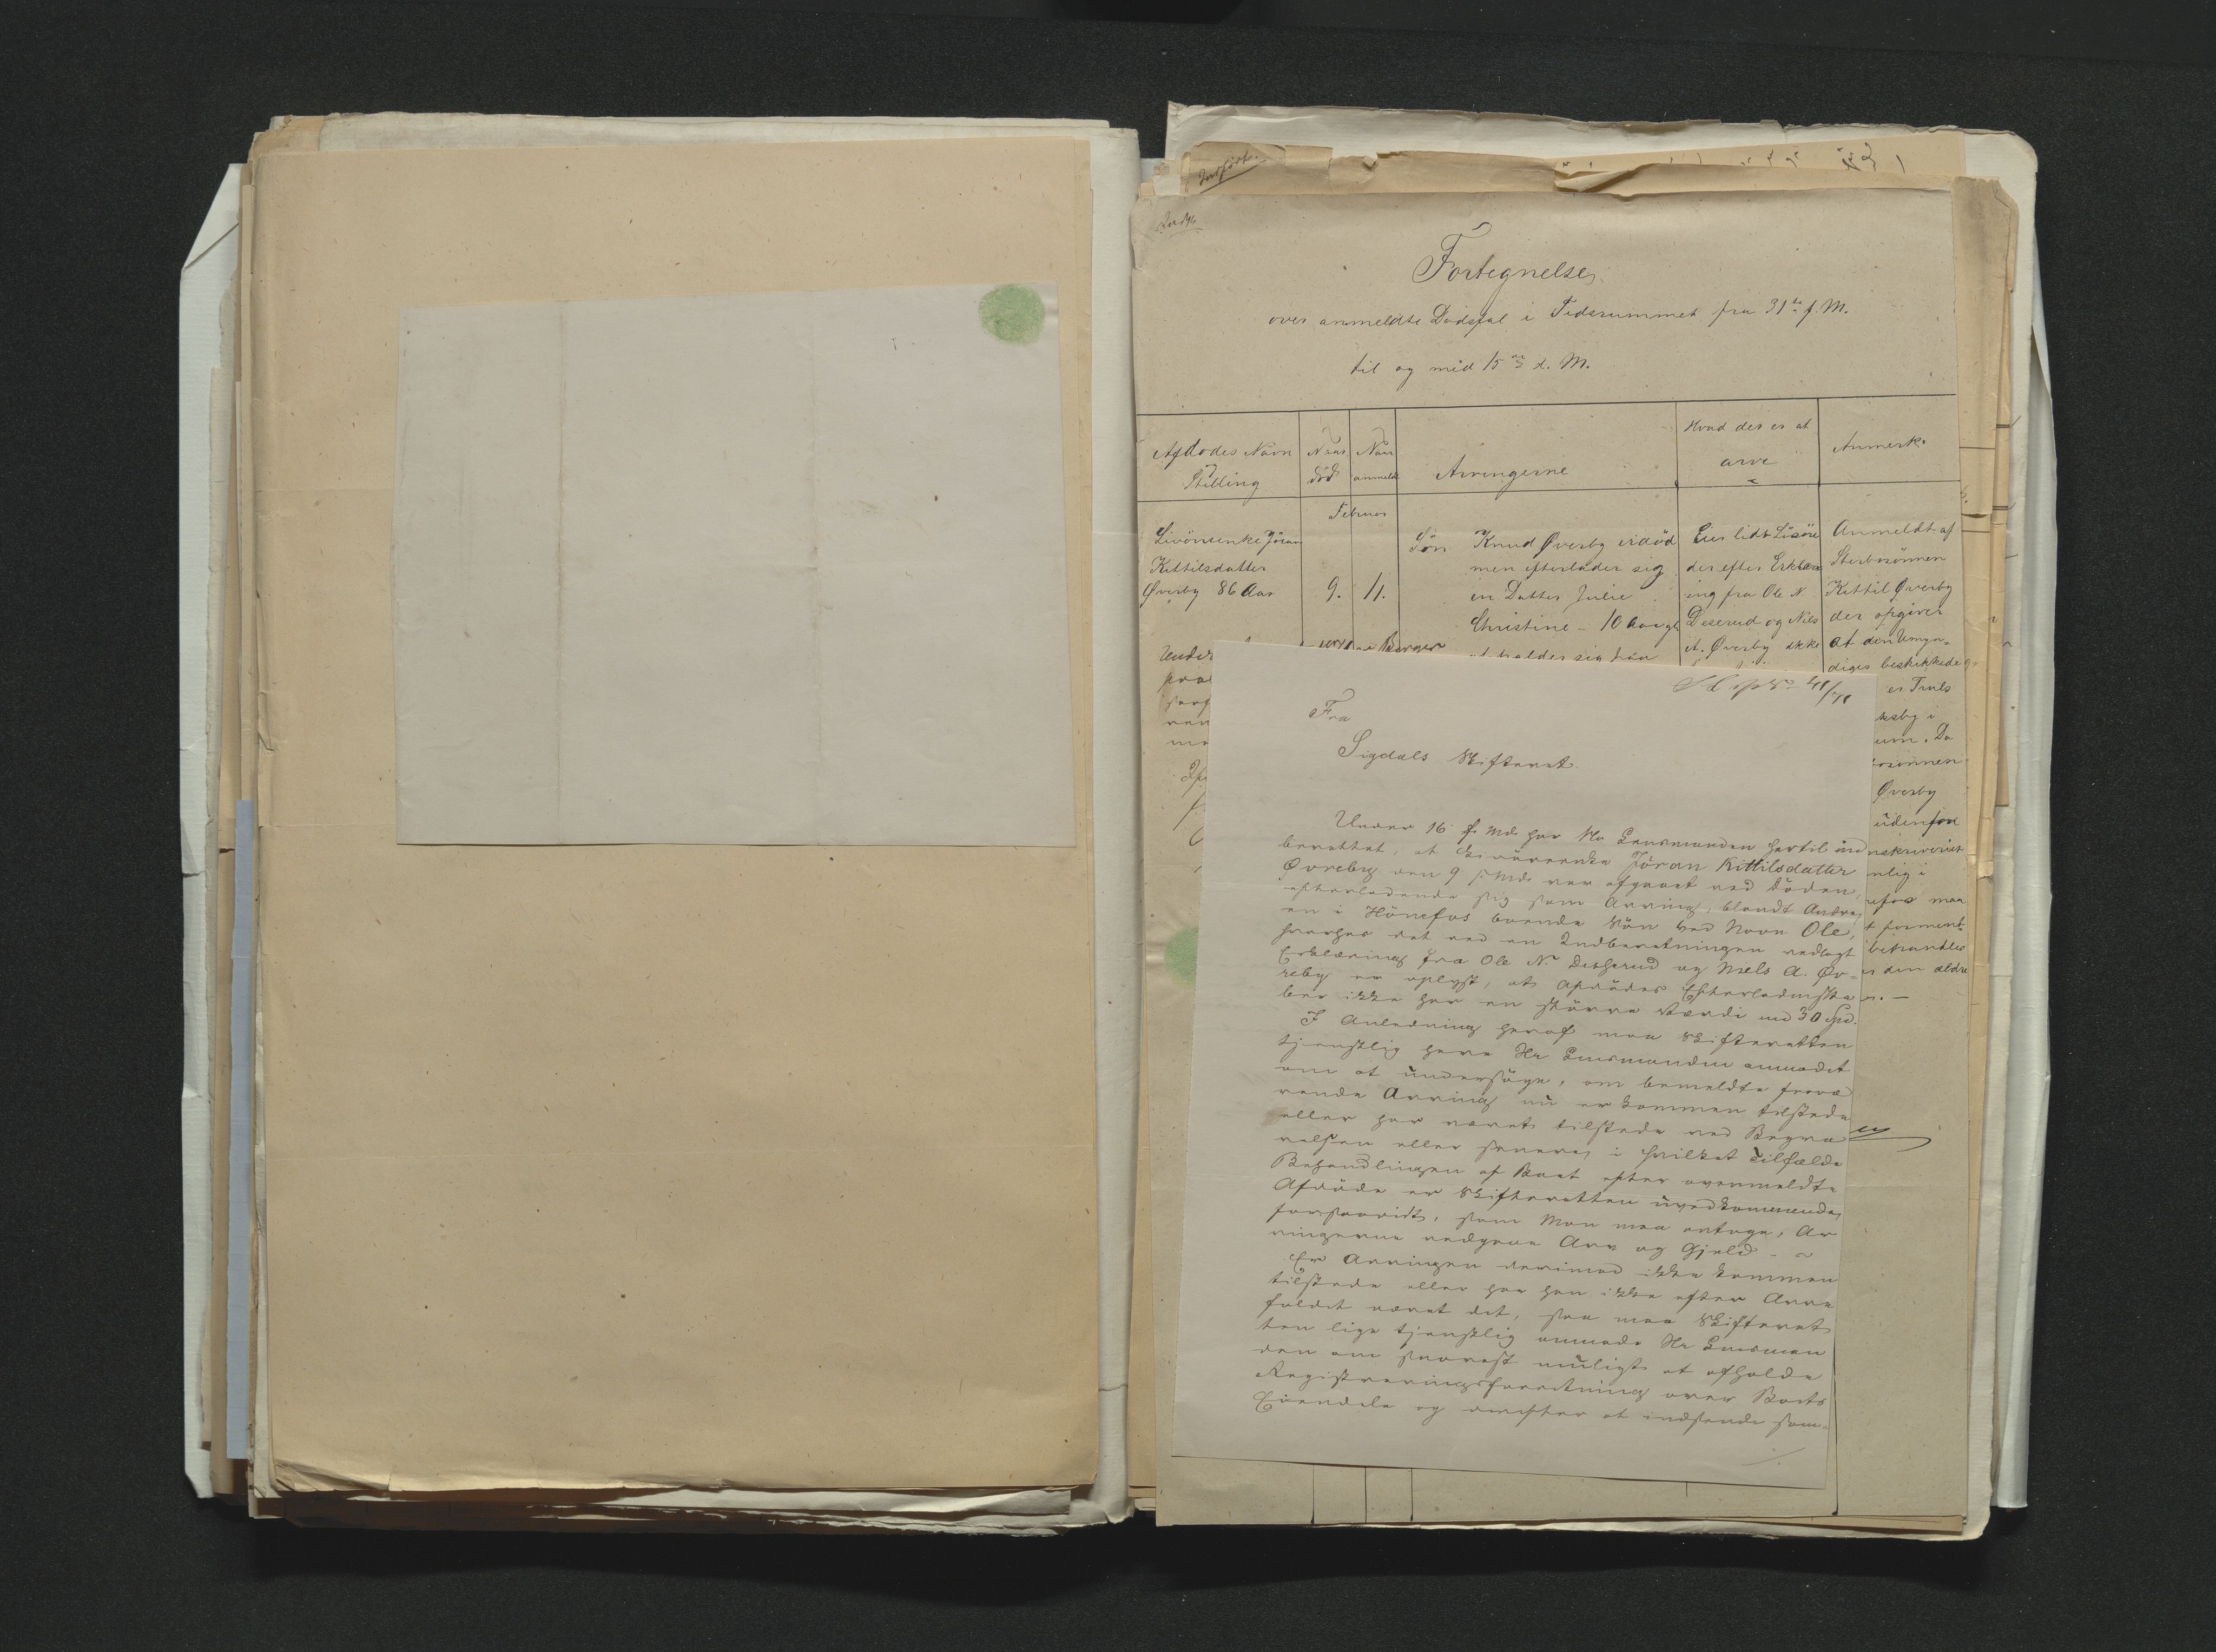 Indført.
Indf.
Fortegnelse
over anmeldte Dødsfal i Tidsrummet fra 31te f. M.
til og med 15de d. M.
Afdødes Navn
Stilling
Naar
død
Naar
anmeldt
Arvingerne
Hvad der er at
arve
Anmerk.
Februar
Livörsenke Jöran
Kittilsdatter
Øvreby 86 Aar
9. 11.
Sön Knud Øvreby er död
men efterlader sig
en Datter Julie
Christine - 10 Aar gl
opholder sig hos
Eier lidt Lösöre
der efter Erklær
ing fra Ole N.
Deserud og Niels
A. Øvreby ikke
Anmeldt af
Sterbosönnen
Kittil Øvreby
der opgiver
at den Umyn-
diges beskikkede
er Truls
ksby i
um. Da
osönnen
Øvreby
udenfor
nskriveriet
nlig i
efor maa
t forment
behandles
den ældre
Under
Fra
Sigdals Skifteret.
Under 16 f. Md. har Hr Lensmanden hertil ind
berettet, at Livörsenke Jöran Kittilsdatter
Øvreby den 9 s. Md. var afgaaet ved Döden,
efterladende sig som Arving, blandt Andre,
en i Hönefos boende Sön ved Navn Ole,
hvorhos det ved en Indberetningen vedlagt
Erklæring fra Ole N. Desherud og Niels A. Øv-
reby er oplyst, at Afdödes Efterladenska
ber ikke har en större Værdi end 30 Spd.
I Anledning heraf maa Skifteretten
tjenstlig have Hr Lensmanden anmodet
om at undersöge, om bemeldte fravæ
rende Arving nu er kommen tilstede
eller har været tilstede ved Begra
velsen eller senere, i hvilket Tilfælde
Behandlingen af Boet efter ovenmeldte
Afdöde er Skifteretten uvedkommende,
forsaavidt, som man maa antage, Ar
vingerne vedgaae Arv og Gjeld. -
Er Arvingen derimod ikke kommen
tilstede eller har han ikke efter Arve
faldet været det, saa maa Skifteret
ten lige tjenstlig anmode Hr Lensman
den om snarest muligt at afholde
Registreringsforretning over Boets
Eiendele og derefter at indsende sam-